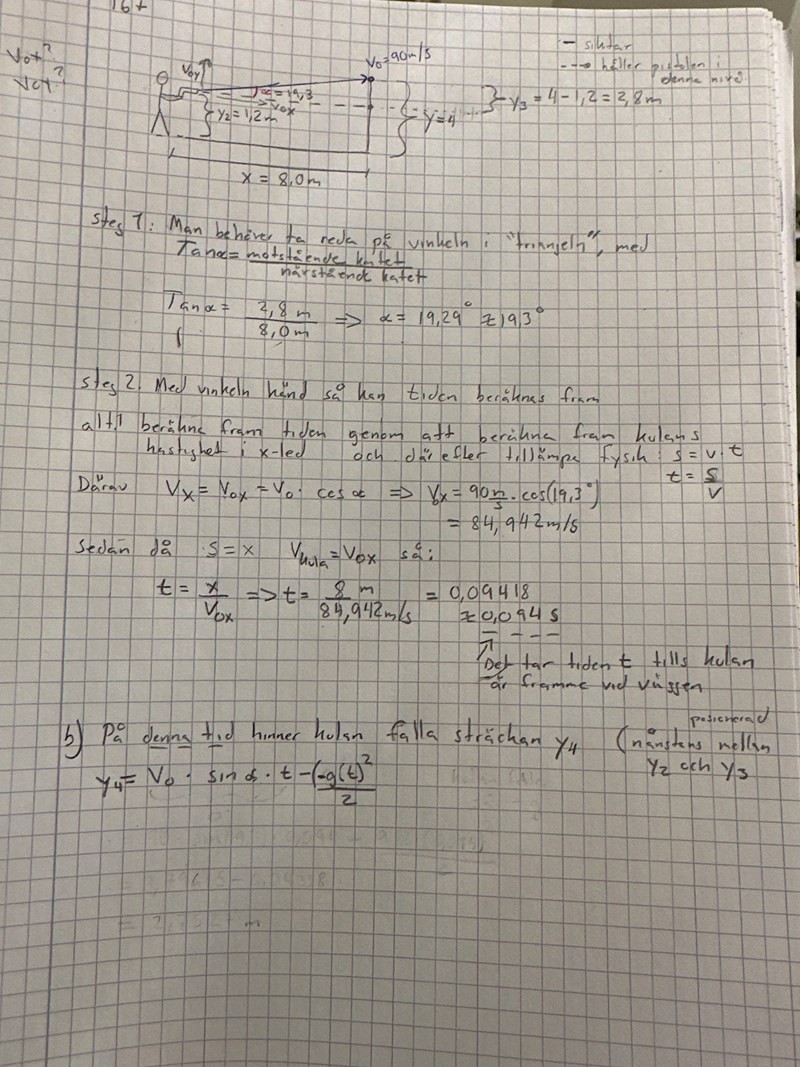 16+
V₀ₓ?
V₀y?
V₀y
V₀=90m/s
— siktar
---> håller pistolen i denna nivå
α=19,3
V₀ₓ
Y₂=1,2m
y=4
} Y₃ = 4-1,2=2,8m
x = 8,0m
steg 1: Man behöver ta reda på vinkeln i "triangeln", med
Tanα= motstående katet / närstående katet
Tanα= 2,8 m / 8,0m => α= 19,29° ≈ 19,3°
steg 2. Med vinkeln känd så kan tiden beräknas fram
allt beräkna fram tiden genom att beräkna fram kulans
hastighet i x-led och därefter tillämpa fysik: s=v·t
t= s/v
Därav Vₓ= V₀ₓ = V₀· cosα => V₀ₓ= 90 m/s · cos(19,3°)
= 84,942m/s
Sedan då s=x Vkula=V₀ₓ så:
t= x/V₀ₓ => t= 8 m / 84,942m/s = 0,09418
≈0,094 s
Det tar tiden t tills kulan
är framme vid väggen
b) På denna tid hinner kulan falla sträckan Y₄ (nånstans mellan
Y₂ och Y₃
Y₄= V₀ · sinα · t -(-g(t)²/2